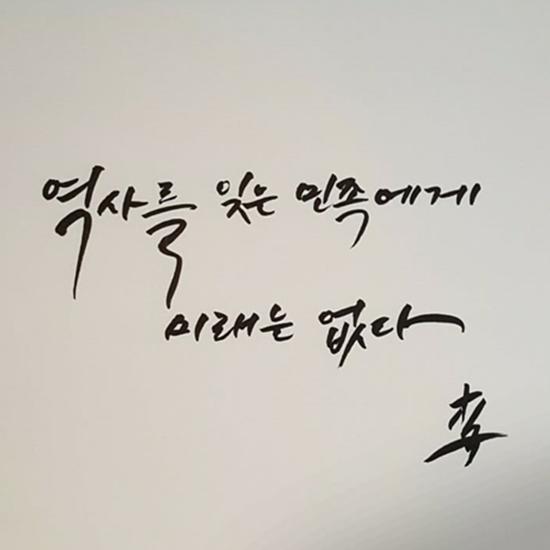 역사를 잊은 민족에게
미래는 없다